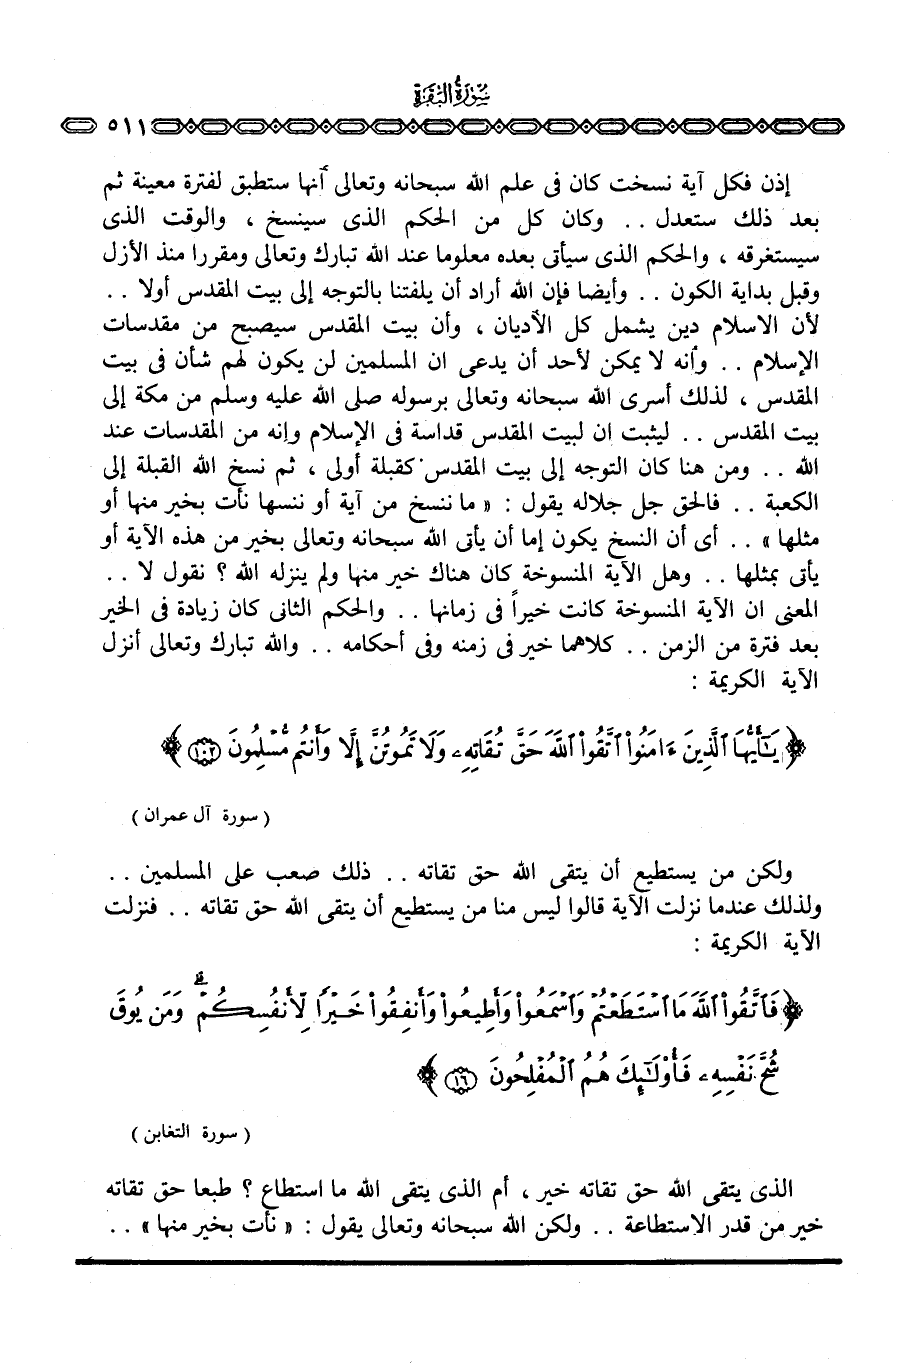 سورة البقرة
٥١١
إذن فكل آية نسخت كان فى علم الله سبحانه وتعالى أنها ستطبق لفترة معينة ثم
بعد ذلك ستعدل .. وكان كل من الحكم الذى سينسخ ، والوقت الذى
سيستغرقه ، والحكم الذى سيأتى بعده معلوما عند الله تبارك وتعالى ومقررا منذ الأزل
وقبل بداية الكون .. وأيضا فإن الله أراد أن يلفتنا بالتوجه إلى بيت المقدس أولا ..
لأن الاسلام دين يشمل كل الأديان ، وأن بيت المقدس سيصبح من مقدسات
الإسلام .. وأنه لا يمكن لأحد أن يدعى ان المسلمين لن يكون لهم شأن فى بيت
المقدس ، لذلك أسرى الله سبحانه وتعالى برسوله صلى الله عليه وسلم من مكة إلى
بيت المقدس .. ليثبت ان لبيت المقدس قداسة فى الإسلام وإنه من المقدسات عند
الله .. ومن هنا كان التوجه إلى بيت المقدس كقبلة أولى ، ثم نسخ الله القبلة إلى
الكعبة .. فالحق جل جلاله يقول : « ما ننسخ من آية أو ننسها نأت بخير منها أو
مثلها » .. أى أن النسخ يكون إما أن يأتى الله سبحانه وتعالى بخير من هذه الآية أو
يأتى بمثلها .. وهل الآية المنسوخة كان هناك خير منها ولم ينزله الله ؟ نقول لا ..
المعنى ان الآية المنسوخة كانت خيراً فى زمانها .. والحكم الثانى كان زيادة فى الخير
بعد فترة من الزمن .. كلاهما خير فى زمنه وفى أحكامه .. والله تبارك وتعالى أنزل
الآية الكريمة :
﴿ يَـٰٓأَيُّهَا ٱلَّذِينَ ءَامَنُوا۟ ٱتَّقُوا۟ ٱللَّهَ حَقَّ تُقَاتِهِۦ وَلَا تَمُوتُنَّ إِلَّا وَأَنتُم مُّسْلِمُونَ ١٠٢ ﴾
( سورة آل عمران )
ولكن من يستطيع أن يتقى الله حق تقاته .. ذلك صعب على المسلمين ..
ولذلك عندما نزلت الآية قالوا ليس منا من يستطيع أن يتقى الله حق تقاته .. فنزلت
الآية الكريمة :
﴿ فَٱتَّقُوا۟ ٱللَّهَ مَا ٱسْتَطَعْتُمْ وَٱسْمَعُوا۟ وَأَطِيعُوا۟ وَأَنفِقُوا۟ خَيْرًا لِّأَنفُسِكُمْ ۗ وَمَن يُوقَ
شُحَّ نَفْسِهِۦ فَأُو۟لَـٰٓئِكَ هُمُ ٱلْمُفْلِحُونَ ١٦ ﴾
( سورة التغابن )
الذى يتقى الله حق تقاته خير ، أم الذى يتقى الله ما استطاع ؟ طبعا حق تقاته
خير من قدر الاستطاعة .. ولكن الله سبحانه وتعالى يقول : « نأت بخير منها » ..